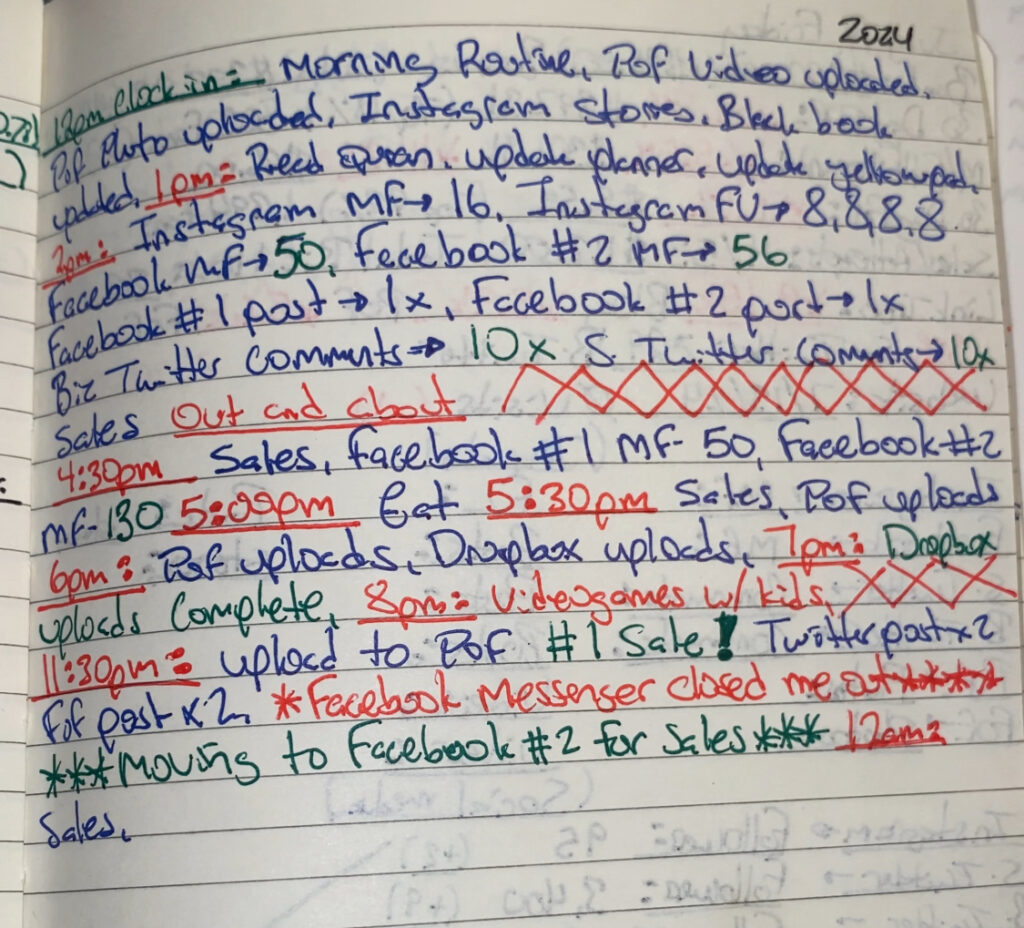 2024
12pm clock in = Morning Routine, Pof Video uploaded,
Pof Photo uploaded, Instagram Stories, Black book
updated, 1pm = Read Quran, update planner, update yellowpad,
2pm: Instagram MF→ 16, Instagram FU→ 8,8,8,8
Facebook MF→ 50, Facebook #2 MF→ 56
Facebook #1 post → 1x, Facebook #2 post → 1x
Biz Twitter Comments → 10x S. Twitter Coments → 10x
Sales Out and about
4:30pm Sales, Facebook #1 MF- 50, Facebook #2
MF-130 5:09pm Eat 5:30pm Sales, Pof uploads
6pm: Pof uploads, Dropbox uploads, 7pm: Dropbox
uploads Complete, 8pm= Videogames w/ kids,
11:30pm= upload to Pof #1 Sale! Twitter post x2
Fof post x2, *Facebook Messenser closed me out****
***Moving to Facebook #2 for Sales*** 12am=
Sales,